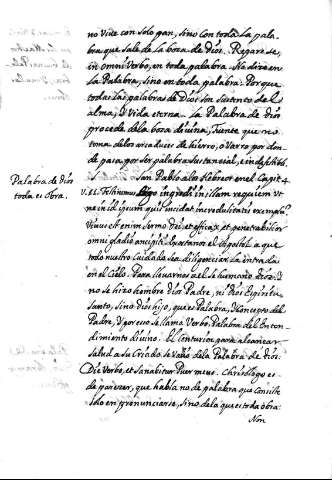 no vive con solo pan, sino con toda la pala-
bra que sale de la boca de Dios. Repare se,
in omni Verbo, en toda palabra. No dize en
la Palabra, sino en toda palabra: Porque
todas las palabras de Dios son sustento del
alma, y Vida eterna. La Palabra de Dios
procede de la boca divina, fuente que no
toma de los arcaduces de hierro, o barro por don-
de pasa, por ser palabra sustancial, e indefectibil.
San Pablo a los Hebreos en el Capit. 4.
Palabra de Dios
toda es Obra.
V. 11. Festinemus ergo ingredi in illam requiem Vt
ne in id ipsum quis incidat incredulitatis exemplũ.
Vivus est enim sermo Dei, et efficax et penetrabilior
omni gladio ancipiti. Exortanos el Apostol a que
todo nuestro Cuidado sea diligenciar la entrada
en el Cielo. Para llevarnos a el se humanó Dios: Y
no se hizo hombre Dios Padre, ni Dios Espiritu
Santo, sino Dios hijo, que es Palabra, y Concepto del
Padre, y por eso se llama Verbo, Palabra del Enten-
dimiento divino. El Centurion para alcançar
salud a su Criado se valió de la Palabra de Dios.
Dic Verbo, et Sanabitur Puer meus. Chrisologo es
de parezer, que habla no de palabra que consiste
solo en pronunciarse, sino de la que es toda obra:
Non